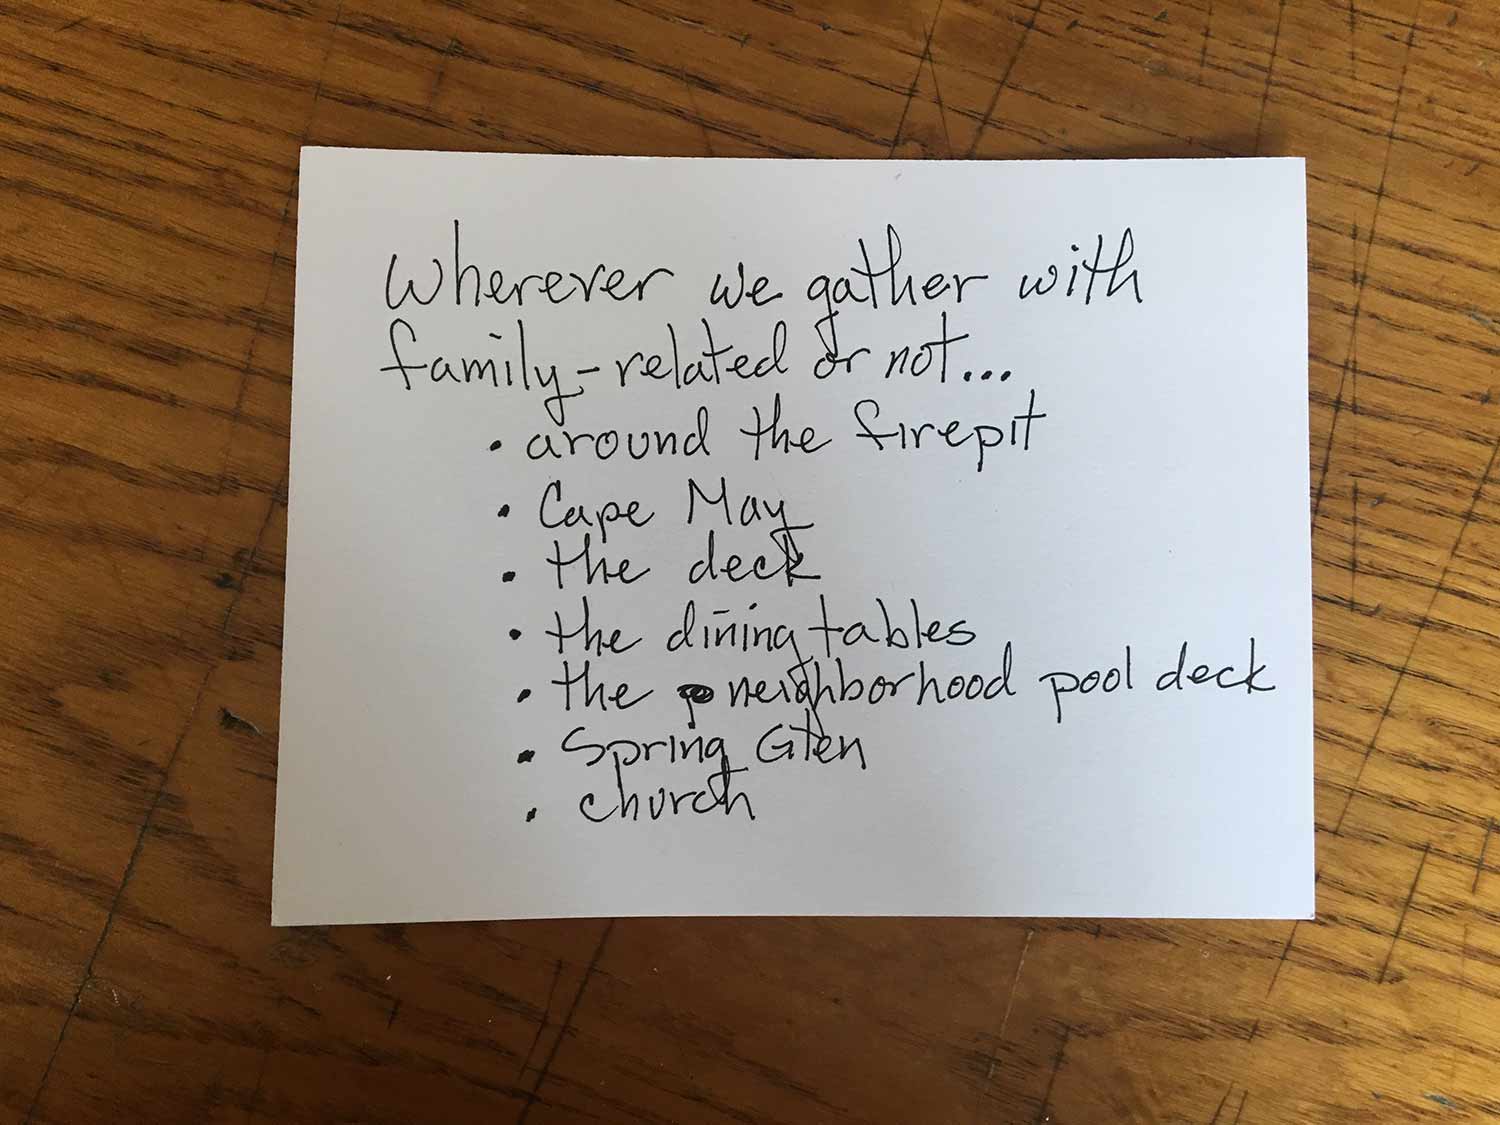 Wherever we gather with
family-related or not...
• around the firepit
• Cape May
• the deck
• the dining tables
• the neighborhood pool deck
• Spring Glen
• church